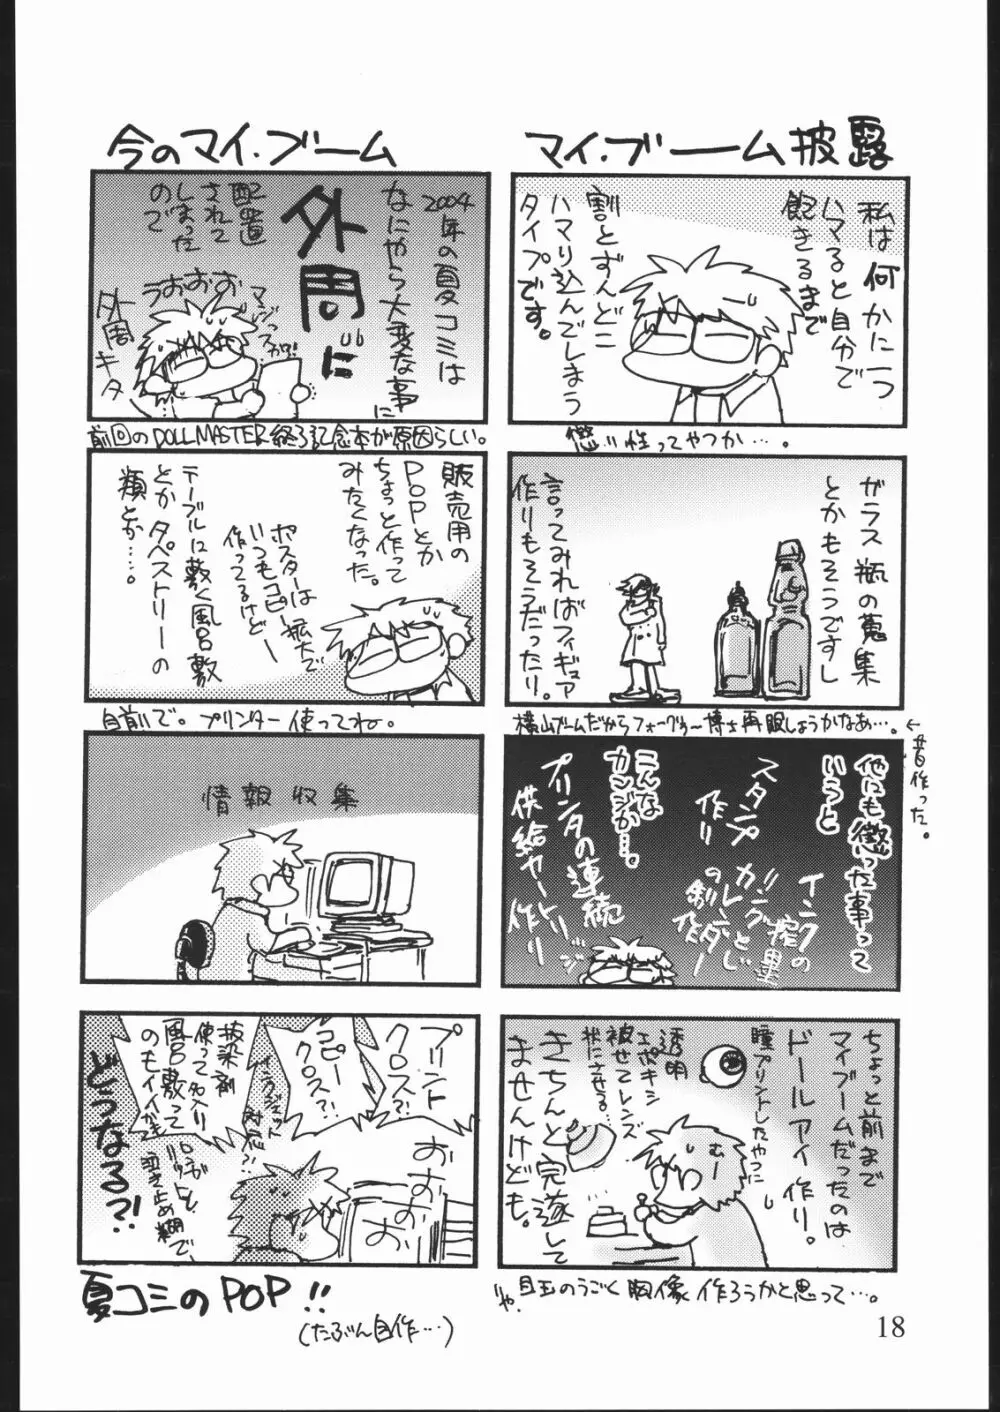 マイ・ブーム披露
私は何かに一つ
ハマると自分で
飽きるまで
割とずんどこ
ハマり込んでしまう
タイプです。
性ってやつか…。
ガラス瓶の蒐集
とかもそうですし
言ってみればフィギュア
作りもそうだったり。
横山ブームだからフォーグラー博士再販しようかなぁ…。
←昔作った。
他にも懲った事って
いうと
インクの
リングとじ
カレンダー
の制作
スタンプ
作り
こんな
カンジか…。
プリンタの連続
供給カートリッジ
作り
ちょっと前まで
マイブームだったのは
ドールアイ作り。
瞳プリントしたやつに
透明
エポキシ
被せてレンズ
状にさせる。
きちんと完遂して
ませんけども。
むー
いや、目玉のうごく胸像作ろうかと思って…。
今のマイ・ブーム
2004
年の夏コミは
なにやら大変な事に
外周に
配置
されて
しまった
ので
うおおお
マジっスか!?
外周キタ
前回のDOLLMASTER終了記念本が原因らしい。
販売用の
POPとか
ちょっと作って
みたくなった。
ポスターは
いつもコピー拡大で
作ってるけどー
テーブルに敷く風呂敷
とかタペストリーの
類とか…。
自前で。プリンター使ってね。
情報収集
プリント
クロス?!
コピー
クロス?!
インクジェット
対応?!
抜染剤
使って名入り
風呂敷って
のもイイかも
どうなる?!
おおおお
夏コミのPOP!!
(たぶん自作…)
18